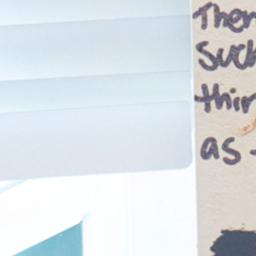 Ther
Such
thin
as